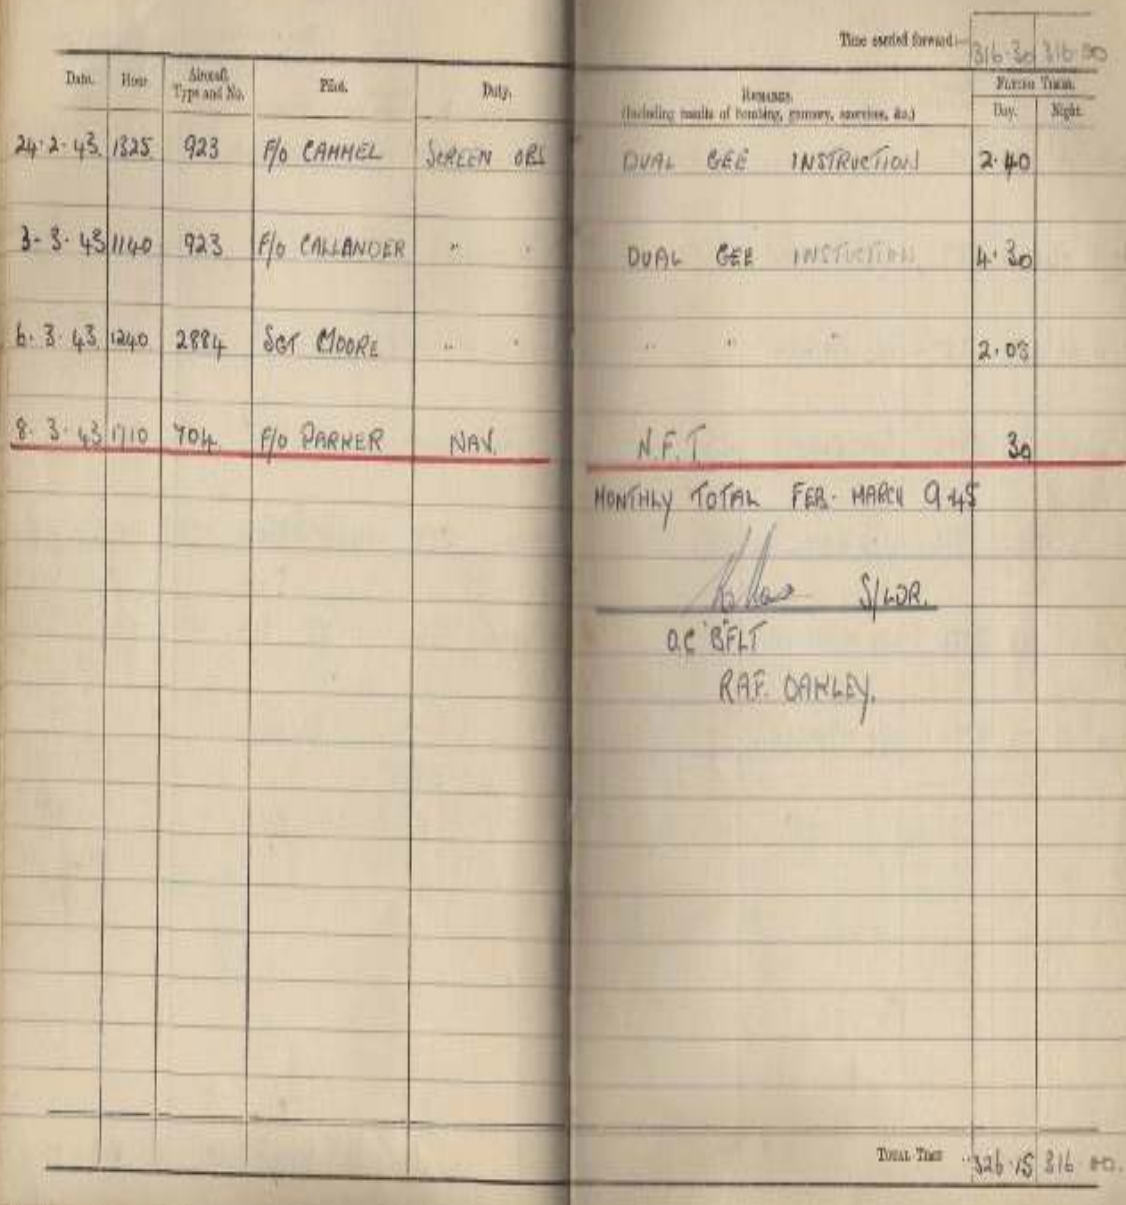 Time carried forward:— 316·30 316·00
Date. Hour Aircraft Type and No. Pilot. Duty. Remarks (Including results of bombing, gunnery, exercises, &c.) Flying Times. Day. Night.
24·2·43 1325 923 F/O CAMMEL SCREEN OBS DUAL GEE INSTRUCTION 2·40
3·3·43 1140 923 F/O CALLANDER " " DUAL GEE INSTUCTION 4·30
6·3·43 1240 2884 SGT MOORE " " " " " 2·05
8·3·43 1710 704 F/O PARKER NAV. N.F.T 30
MONTHLY TOTAL FEB- MARCH 9·45
S/LDR.
O.C "B" FLT
RAF. OAKLEY.
Total Time .. 326·15 316·00.